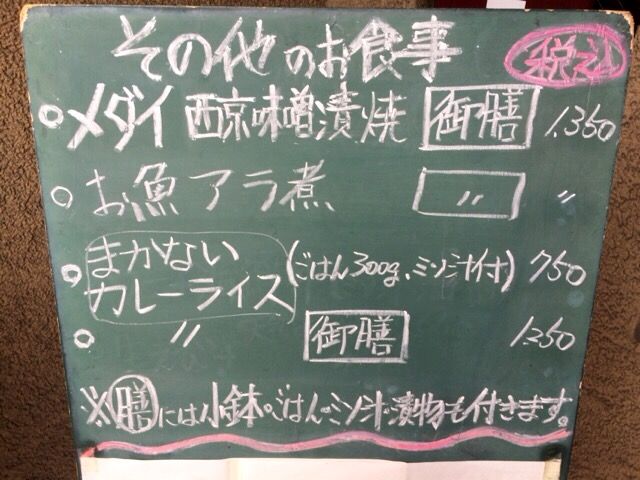 その他のお食事 税込
○メダイ 西京味噌漬焼 御膳 1.350
○お魚アラ煮 〃 〃
○まかない
カレーライス (ごはん300g、ミソ汁付) 750
○ 〃 御膳 1.350
※膳には小鉢・ごはん・ミソ汁・漬物も付きます。